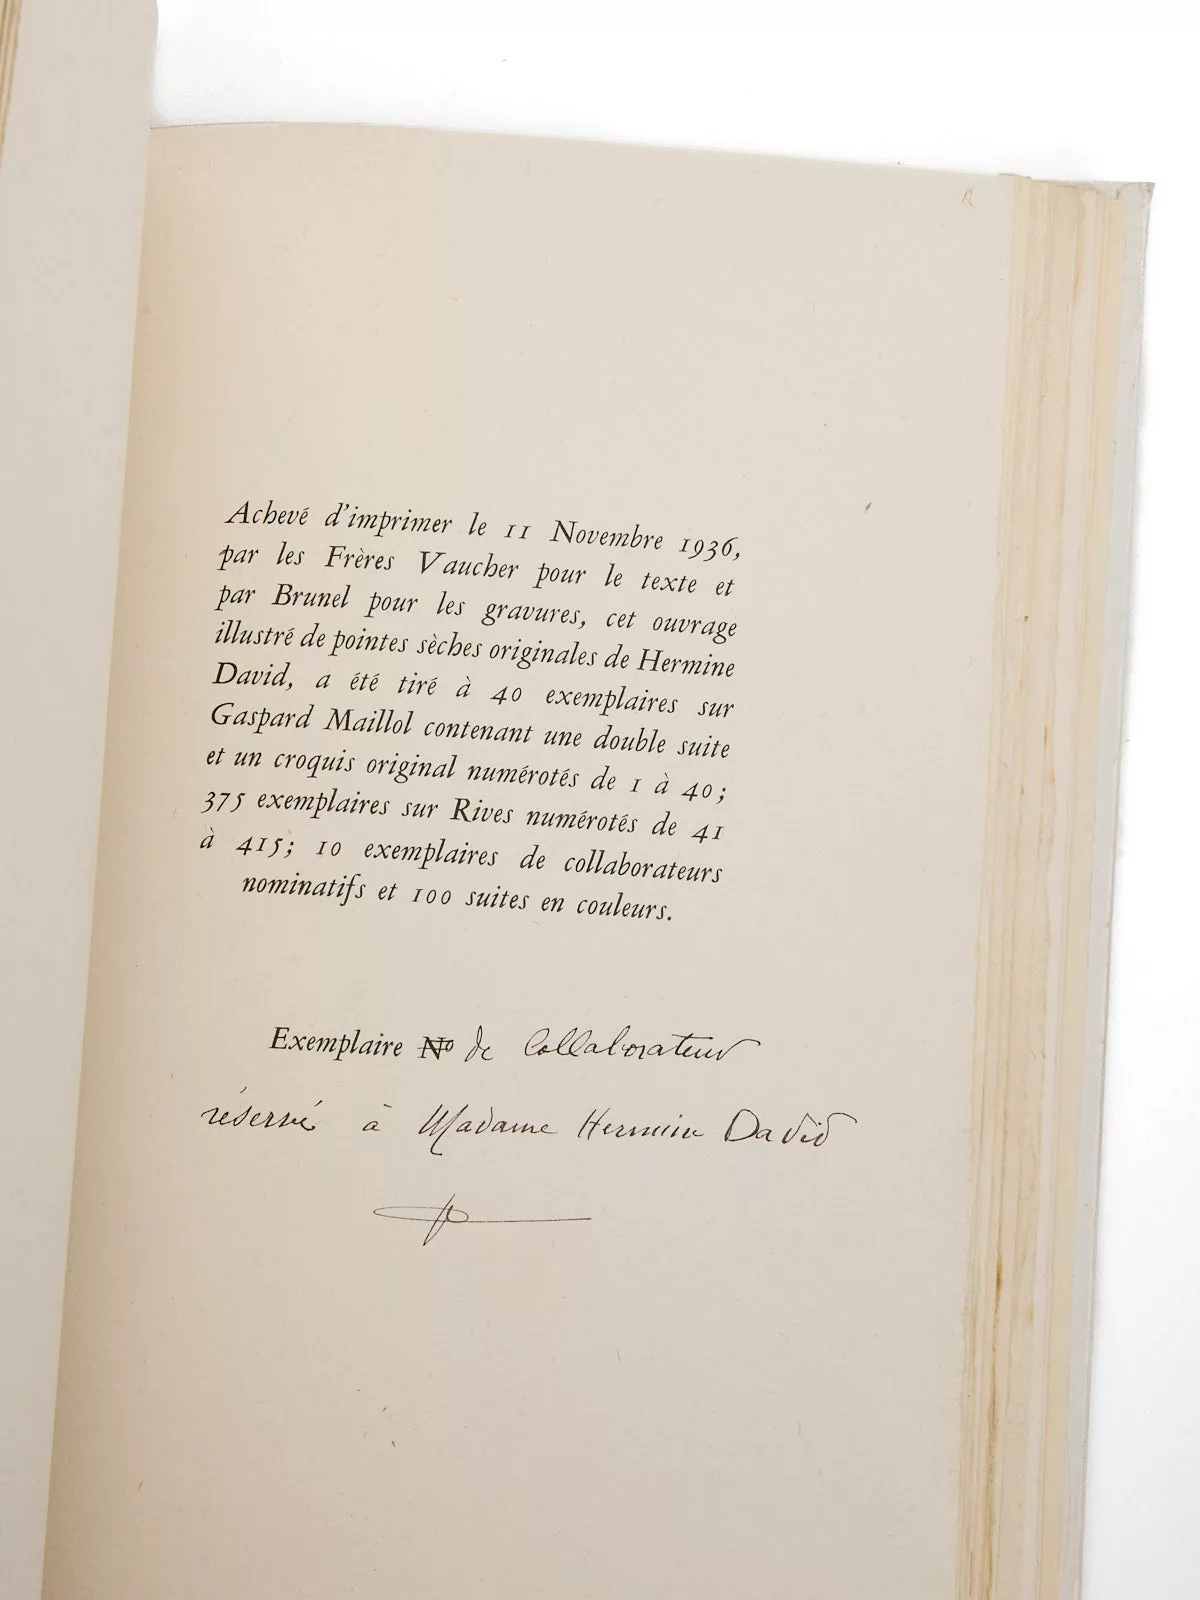 Achevé d'imprimer le 11 Novembre 1936,
par les Frères Vaucher pour le texte et
par Brunel pour les gravures, cet ouvrage
illustré de pointes sèches originales de Hermine
David, a été tiré à 40 exemplaires sur
Gaspard Maillol contenant une double suite
et un croquis original numérotés de 1 à 40;
375 exemplaires sur Rives numérotés de 41
à 415; 10 exemplaires de collaborateurs
nominatifs et 100 suites en couleurs.
Exemplaire No de Collaborateur
réservé à Madame Hermine David